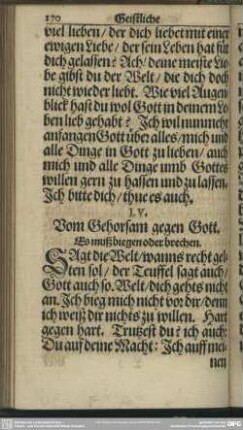 170 Geistliche
viel lieben / der dich liebet mit einer
ewigen Liebe / der sein Leben hat für
dich gelassen? Ach / deine meiste Lie-
be gibst du der Welt / die dich doch
nicht wieder liebt. Wie viel Augen-
blick hast du wol Gott in deinem Le-
ben lieb gehabt? Ich wil nunmehr
anfangen Gott über alles / mich und
alle Dinge in Gott zu lieben / auch
mich und alle Dinge umb Gottes
willen gern zu hassen und zu lassen.
Ich bitte dich / thue es auch.
LV.
Vom Gehorsam gegen Gott.
Es muß biegen oder brechen.
SAgt die Welt / wanns recht gel-
ten sol / der Teuffel sagt auch /
Gott auch so. Welt / dich gehts nicht
an. Ich bieg mich nicht vor dir / denn
ich weiß dir nichts zu willen. Hart
gegen hart. Trutzest du? ich auch:
Du auf deine Macht: Ich auff mei-
nen